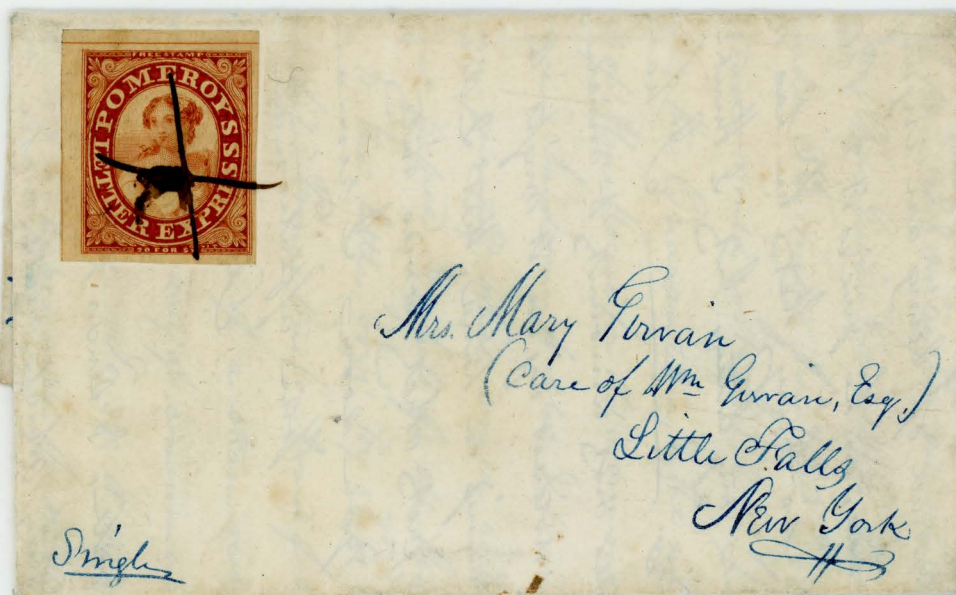 FREE STAMP
POMEROY'S LETTER EXPRESS
20 FOR $1
Mrs. Mary Girvan
(Care of Wm Girvan, Esq.)
Little Falls
New York
Single